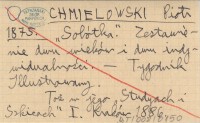 CHMIELOWSKI Piotr
1873. „Sobótka”. Zestawie-
nie dwu wieków i dwu indy-
widualności — Tygodnik
Illustrowany.
Toż w jego Studyach i
Szkicach I. Kraków, 1886